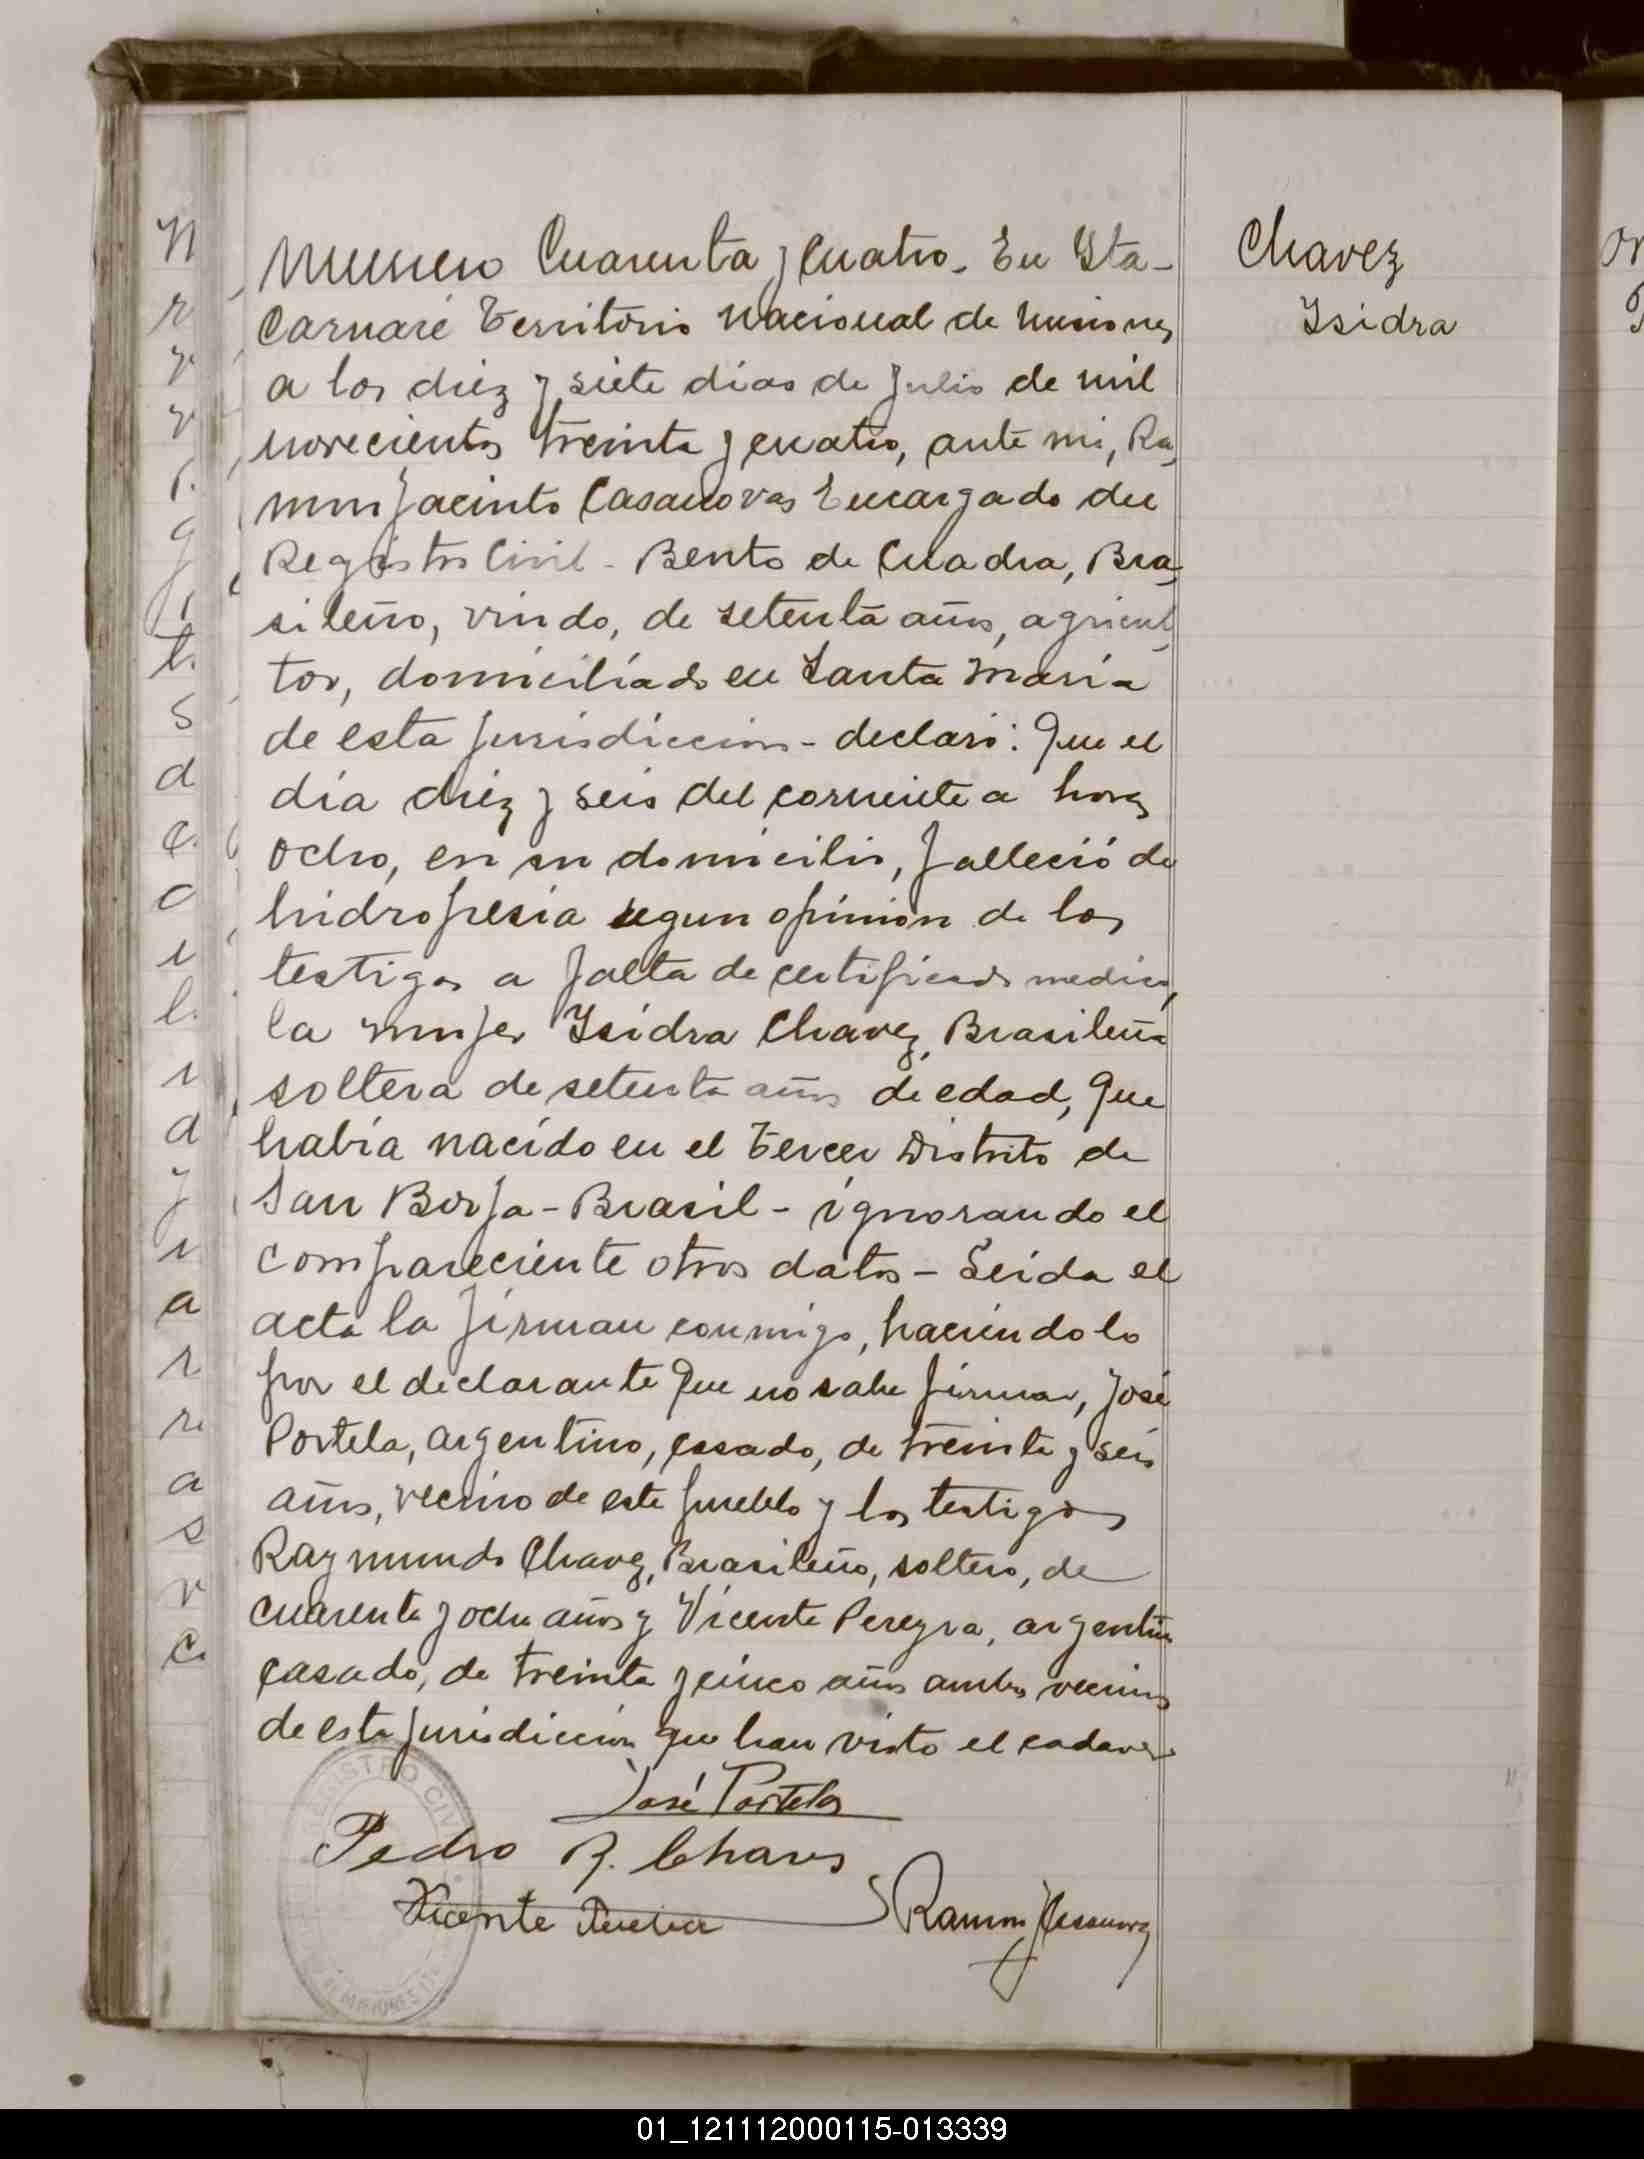 Numero Cuarenta y Cuatro. En Ita-
Carnaré Territorio Nacional de Misiones
a los diez y siete días de Julio de mil
novecientos treinta y cuatro, ante mi, Ra,
mon Jacinto Casanovas Encargado del
Registro Civil - Bento de Cuadra, Bra,
sileño, viudo, de setenta años, agricul,
tor, domiciliado en Santa María
de esta jurisdiccion - declaró: Que el
día diez y seis del corriente a horas
ocho, en su domicilio, falleció de
hidropesia segun opinion de los
testigos a falta de certificado medico,
la mujer Isidra Chavez, Brasileña
soltera de setenta años de edad, que
había nacido en el Tercer Distrito de
San Borja - Brasil - ignorando el
compareciente otros datos - Leida el
acta la firman conmigo, haciendolo
por el declarante que no sabe firmar, José
Portela, argentino, casado, de treinta y seis
años, vecino de este pueblo y los testigos
Raymundo Chavez, Brasileño, soltero, de
cuarenta y ocho años y Vicente Pereyra, argentino
casado, de treinta y cinco años ambos vecinos
de esta jurisdiccion que han visto el cadaver
José Portela
Pedro R. Chaves
Vicente
Ramon J Casanovas
REGISTRO CIVIL
MISIONES
Chavez
Isidra
01_121112000115-013339